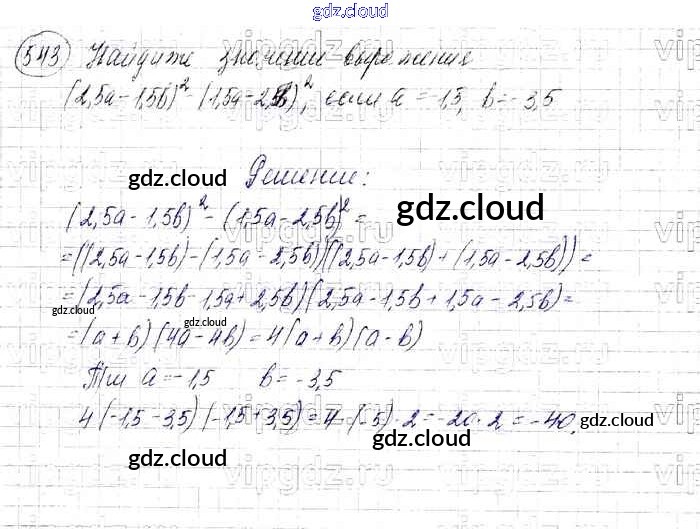 gdz.cloud
543 Найдите значение выражения
(2,5a-1,5b)² - (1,5a-2,5b)², если a = -1,5, b = -3,5
gdz.cloud Решение:
gdz.cloud
(2,5a-1,5b)² - (1,5a-2,5b)² =
=((2,5a-1,5b)-(1,5a-2,5b))((2,5a-1,5b)+(1,5a-2,5b))=
=(2,5a-1,5b-1,5a+2,5b)(2,5a-1,5b+1,5a-2,5b)=
gdz.cloud
gdz.cloud
=(a+b)(4a-4b)=4(a+b)(a-b)
a=-1,5 b=-3,5
4(-1,5-3,5)(-1,5+3,5)=4·(-5)·2=-20·2=-40.
gdz.cloud
gdz.cloud
gdz.cloud